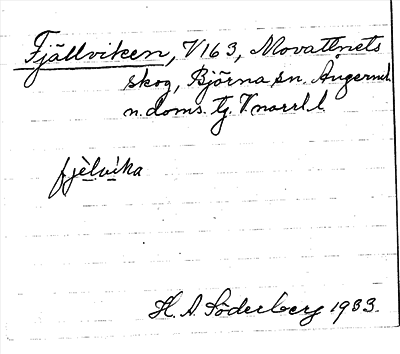 Fjällviken, V163, Movattnets
skog, Björna sn. Ångerml.
n. doms. tg. Vnorrl l.
fjèlvika
H. A. Söderberg 1933.